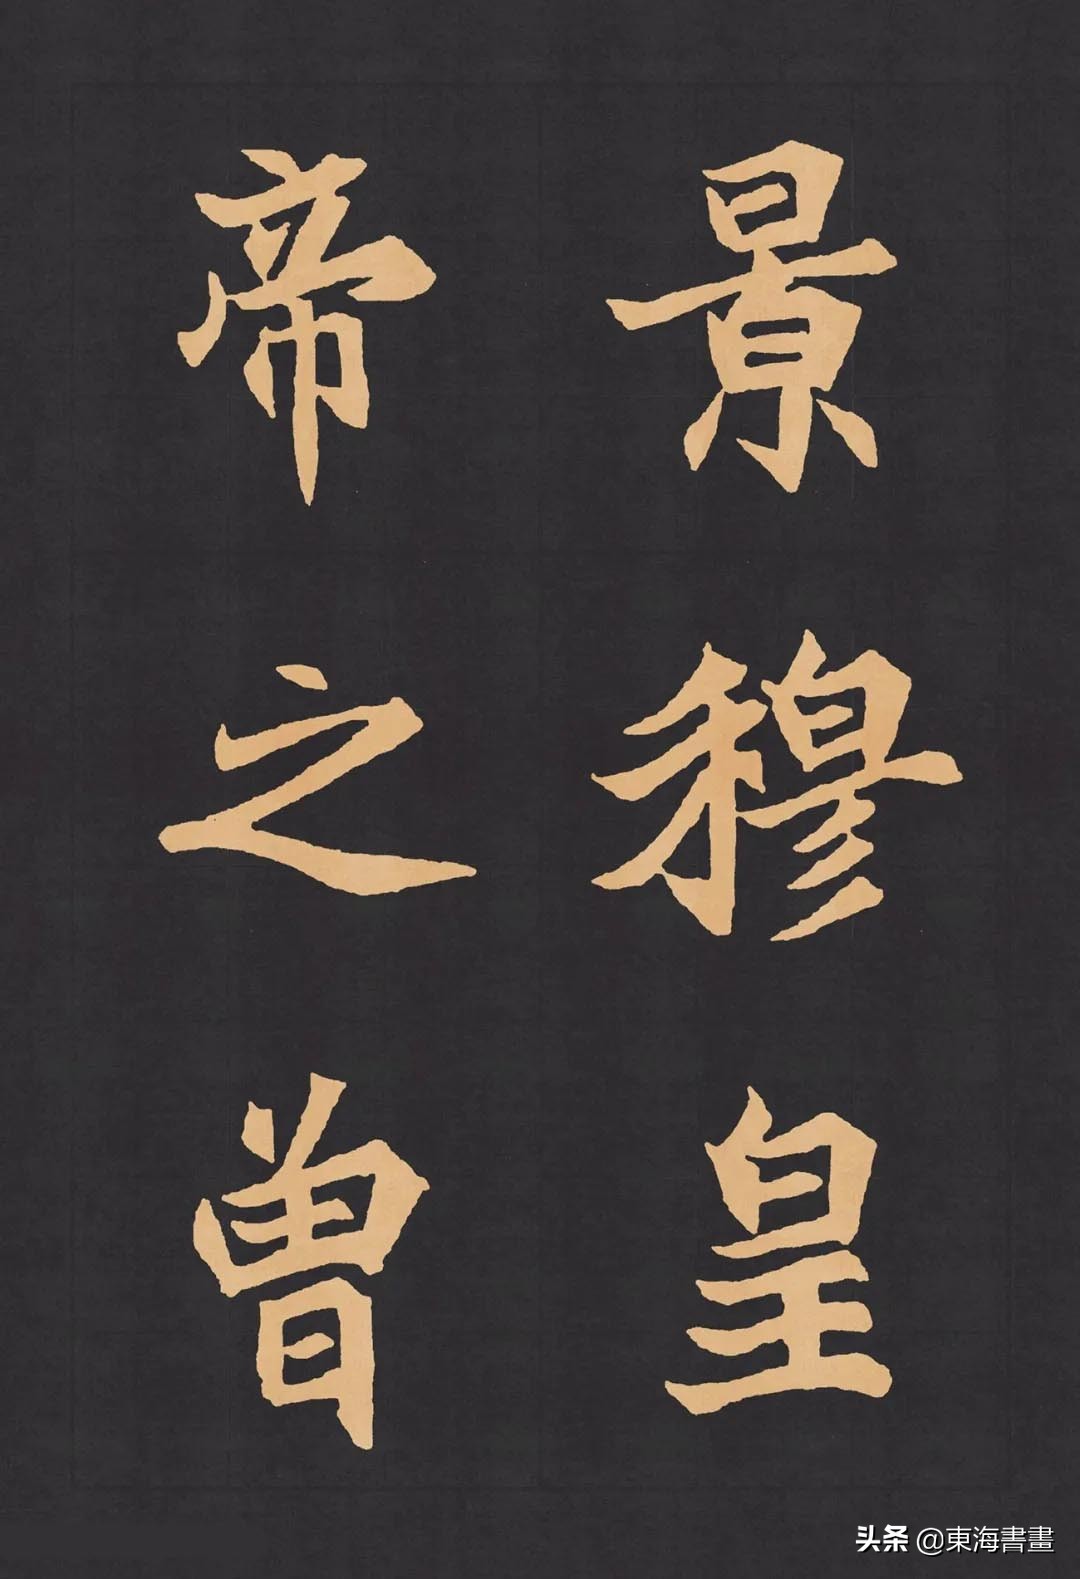 景穆皇
帝之曾
头条 @東海書畫